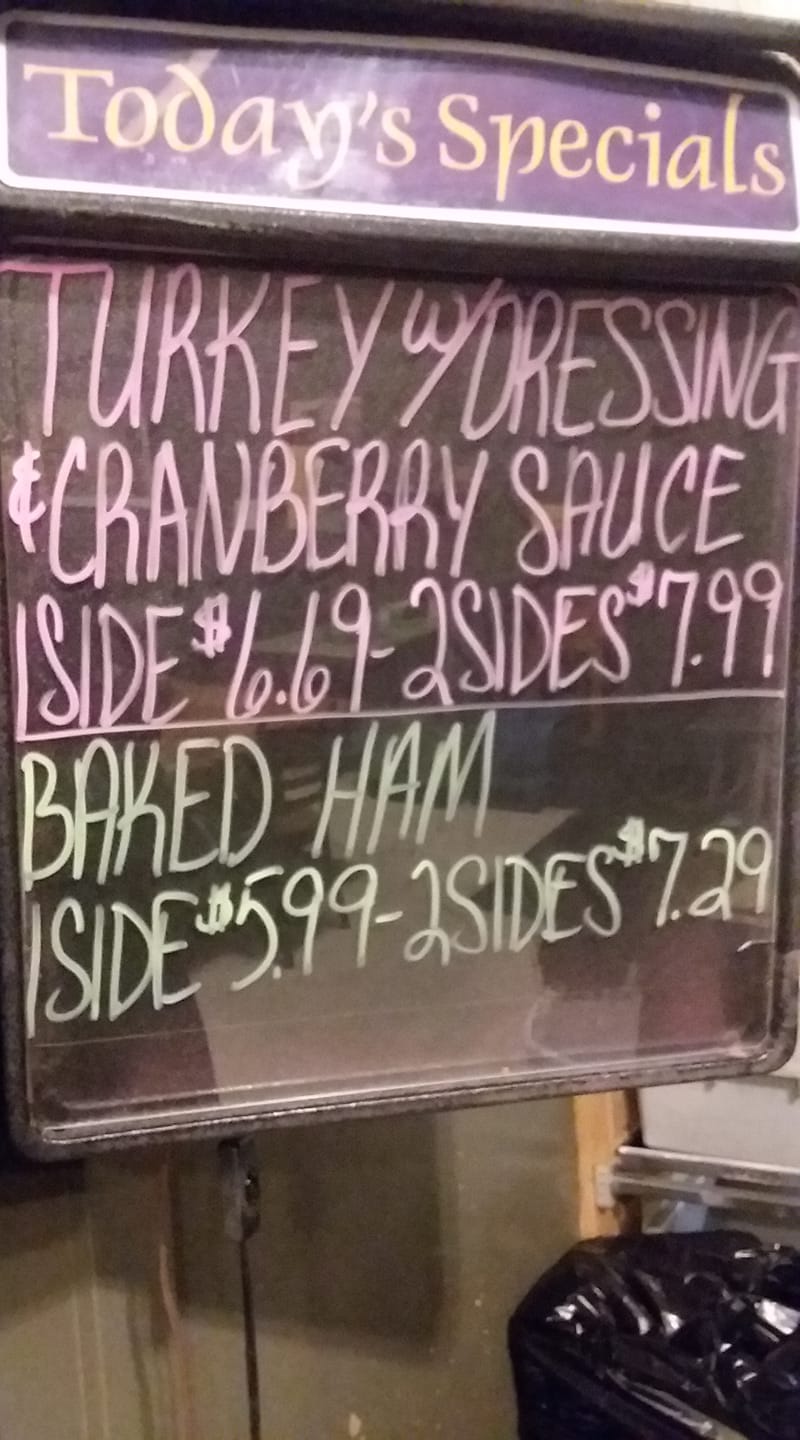 Today's Specials
TURKEY W/DRESSING
& CRANBERRY SAUCE
1 SIDE $6.69-2 SIDES $7.99
BAKED HAM
1 SIDE $5.99-2 SIDES $7.29